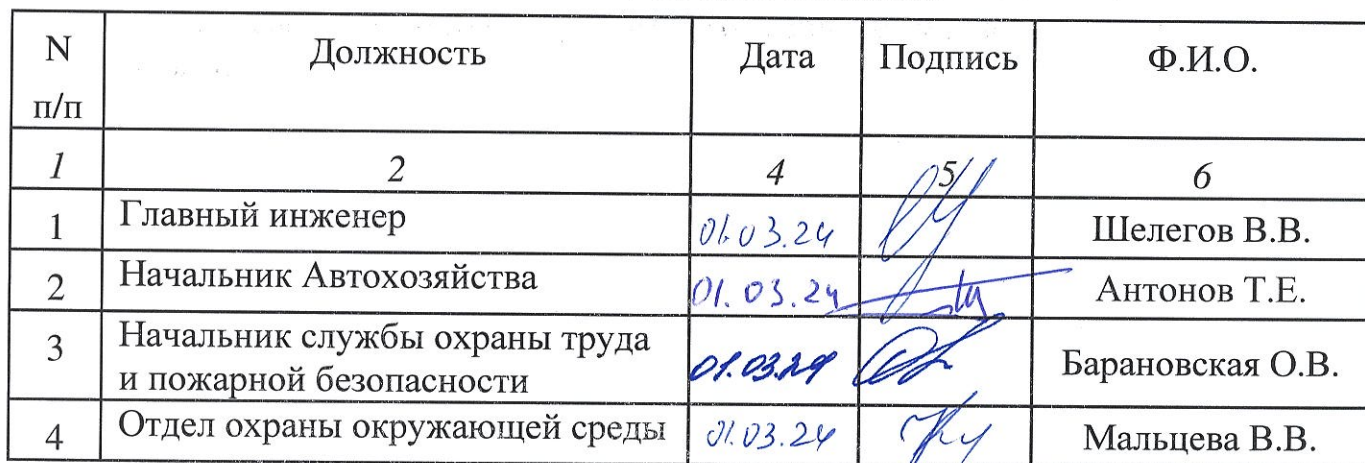 N п/п Должность Дата Подпись Ф.И.О.
1 2 4 5 6
1 Главный инженер 01.03.24 Шелегов В.В.
2 Начальник Автохозяйства 01.03.24 Антонов Т.Е.
3 Начальник службы охраны труда
и пожарной безопасности 01.03.24 Барановская О.В.
4 Отдел охраны окружающей среды 01.03.24 Мальцева В.В.